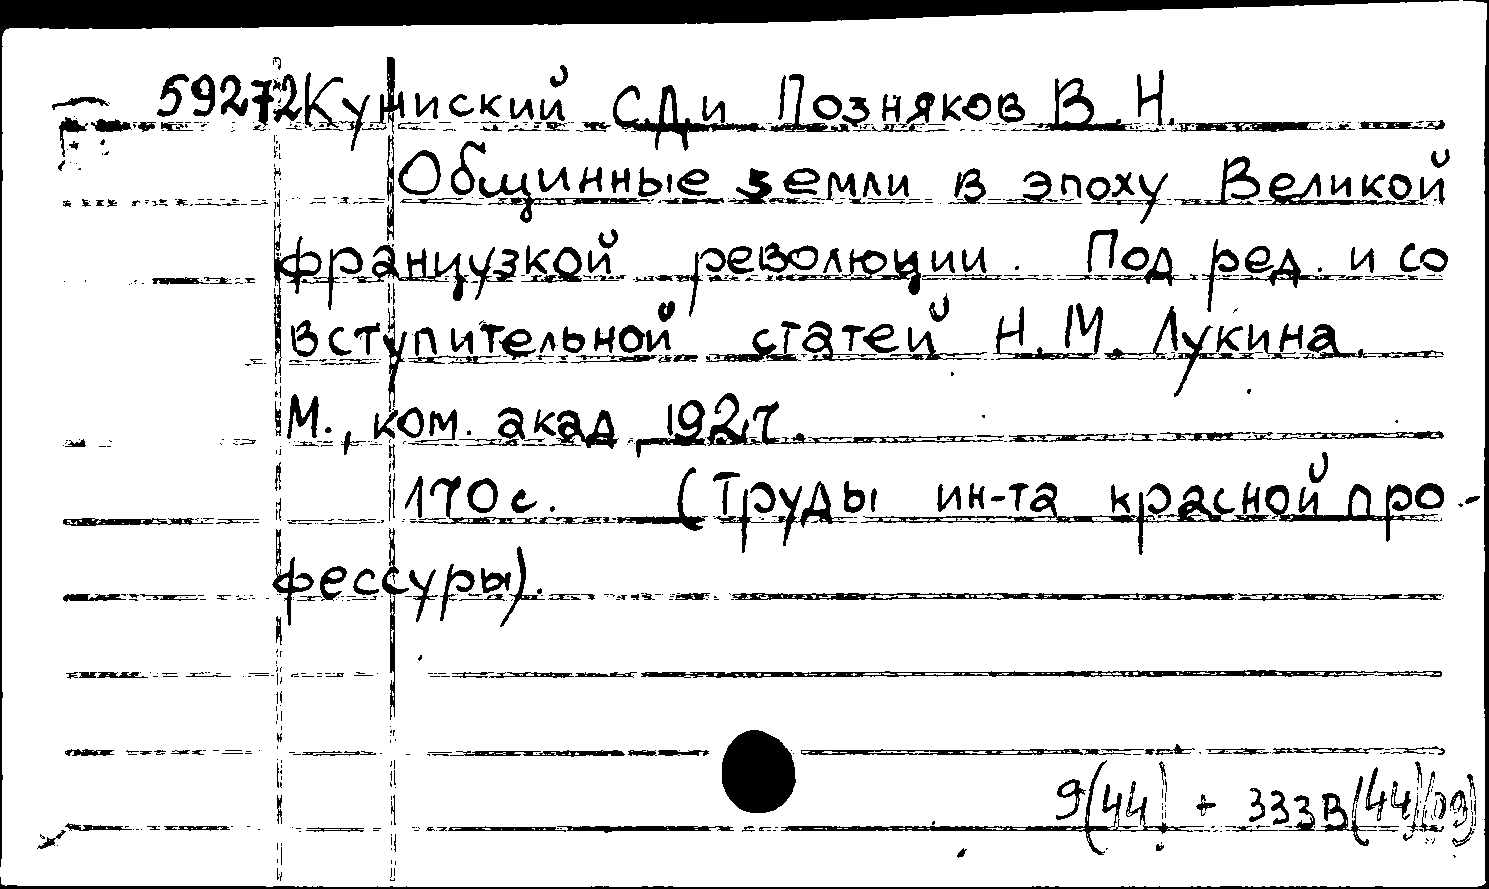 59272 Куниский С.Д. и Позняков В. Н.
Общинные земли в эпоху Великой
французкой революции. Под ред. и со
вступительной статей Н. М. Лукина.
М., ком. акад, 1927.
170 с. (Труды ин-та красной про-
фессуры).
9(44) + 333В(44)(09)